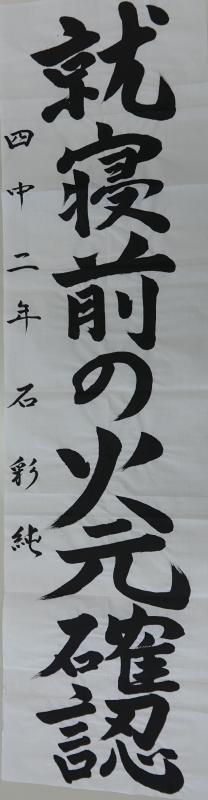 就寝前の火元確認
四中二年 石彩純